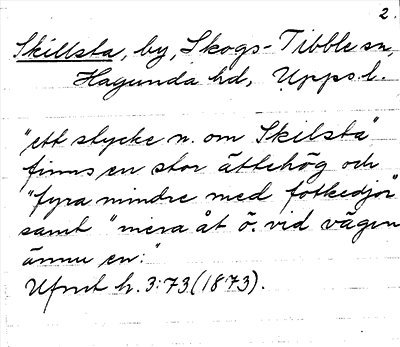 2.
Skillsta, by, Skogs-Tibble sn,
Hagunda hd, Upps. l.
"ett stycke n. om Skilsta"
finns en stor ättehög och
"fyra mindre med fotkedjor"
samt "mera åt ö. vid vägen
ännu en:"
Ufmt h. 3:73 (1873).